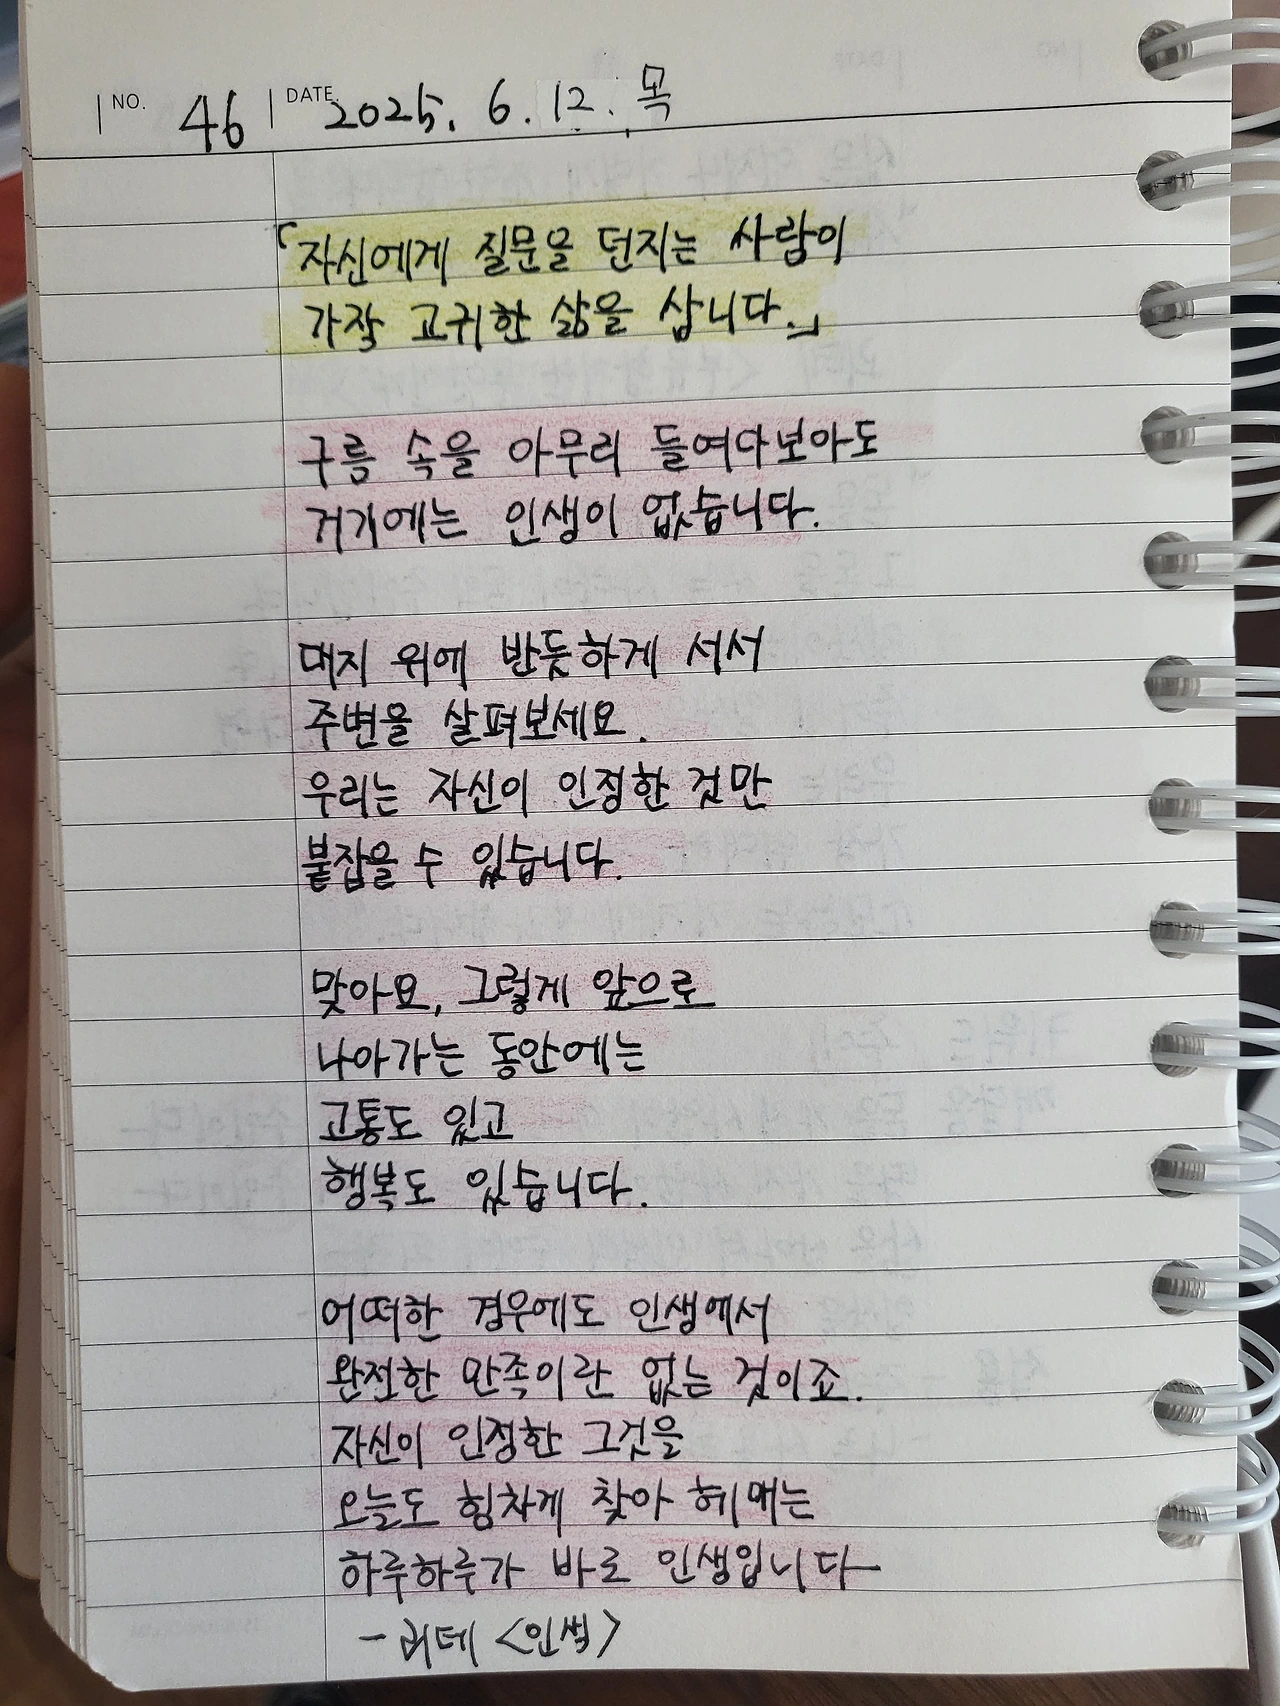 NO. 46 DATE. 2025. 6. 12. 목
「자신에게 질문을 던지는 사람이
가장 고귀한 삶을 삽니다.」
구름 속을 아무리 들여다보아도
거기에는 인생이 없습니다.
대지 위에 반듯하게 서서
주변을 살펴보세요.
우리는 자신이 인정한 것만
붙잡을 수 있습니다.
맞아요, 그렇게 앞으로
나아가는 동안에는
고통도 있고
행복도 있습니다.
어떠한 경우에도 인생에서
완전한 만족이란 없는 것이죠.
자신이 인정한 그것을
오늘도 힘차게 찾아 헤매는
하루하루가 바로 인생입니다
- 괴테 <인생>